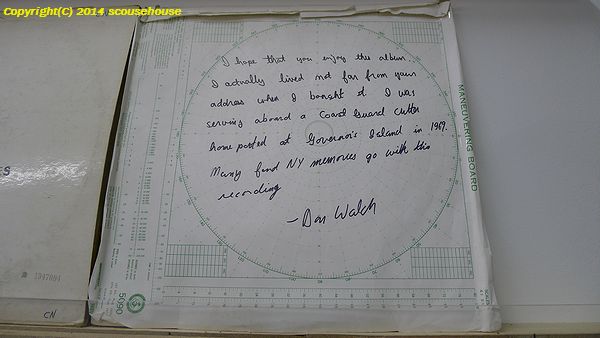 Copyright(C) 2014 scousehouse
I hope that you enjoy this album.
I actually lived not far from your
address when I bought it. I was
serving aboard a Coast Guard Cutter
home ported at Governor's Island in 1969.
Many fond NY memories go with this
recording
- Walch
MANEUVERING BOARD
5090
CN